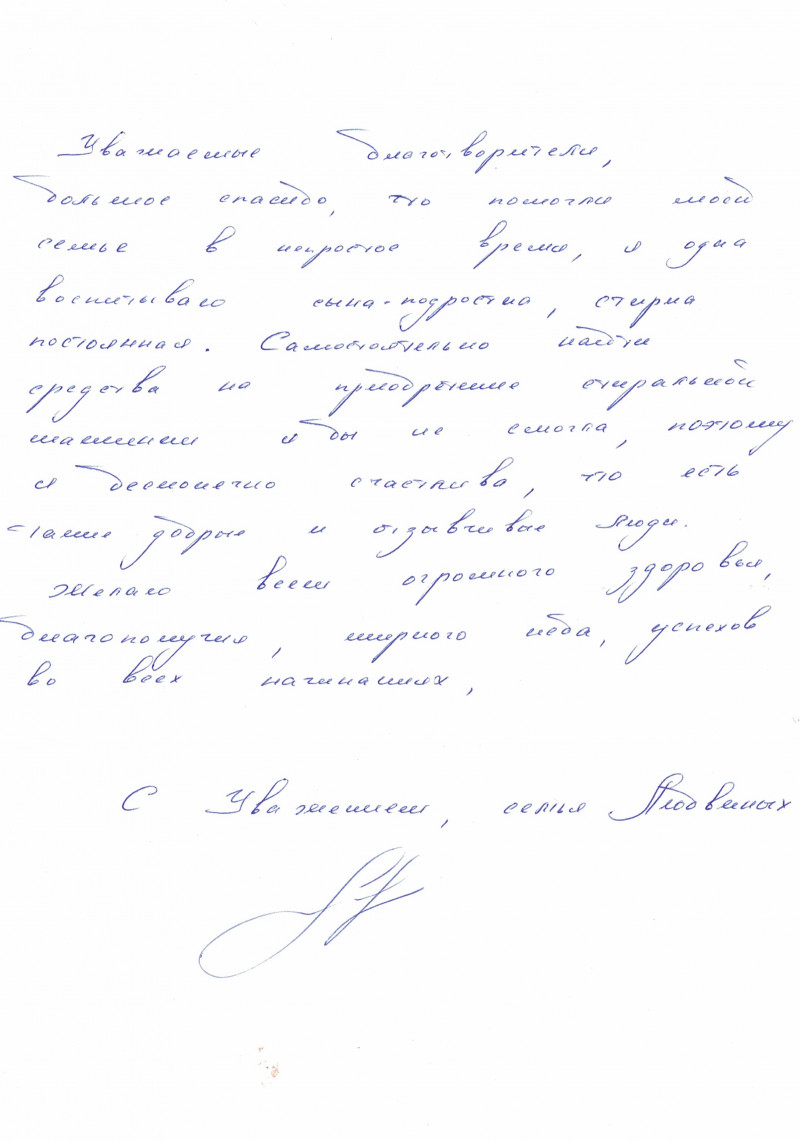 Уважаемые благотворители,
большое спасибо, что помогли моей
семье в непростое время, я одна
воспитываю сына-подростка, стирка
постоянная. Самостоятельно найти
средства на приобретение стиральной
машинки я бы не смогла, поэтому
я бесконечно счастлива, что есть
такие добрые и отзывчивые люди.
Желаю всем огромного здоровья,
благополучия, мирного неба, успехов
во всех начинаниях,
С Уважением, семья